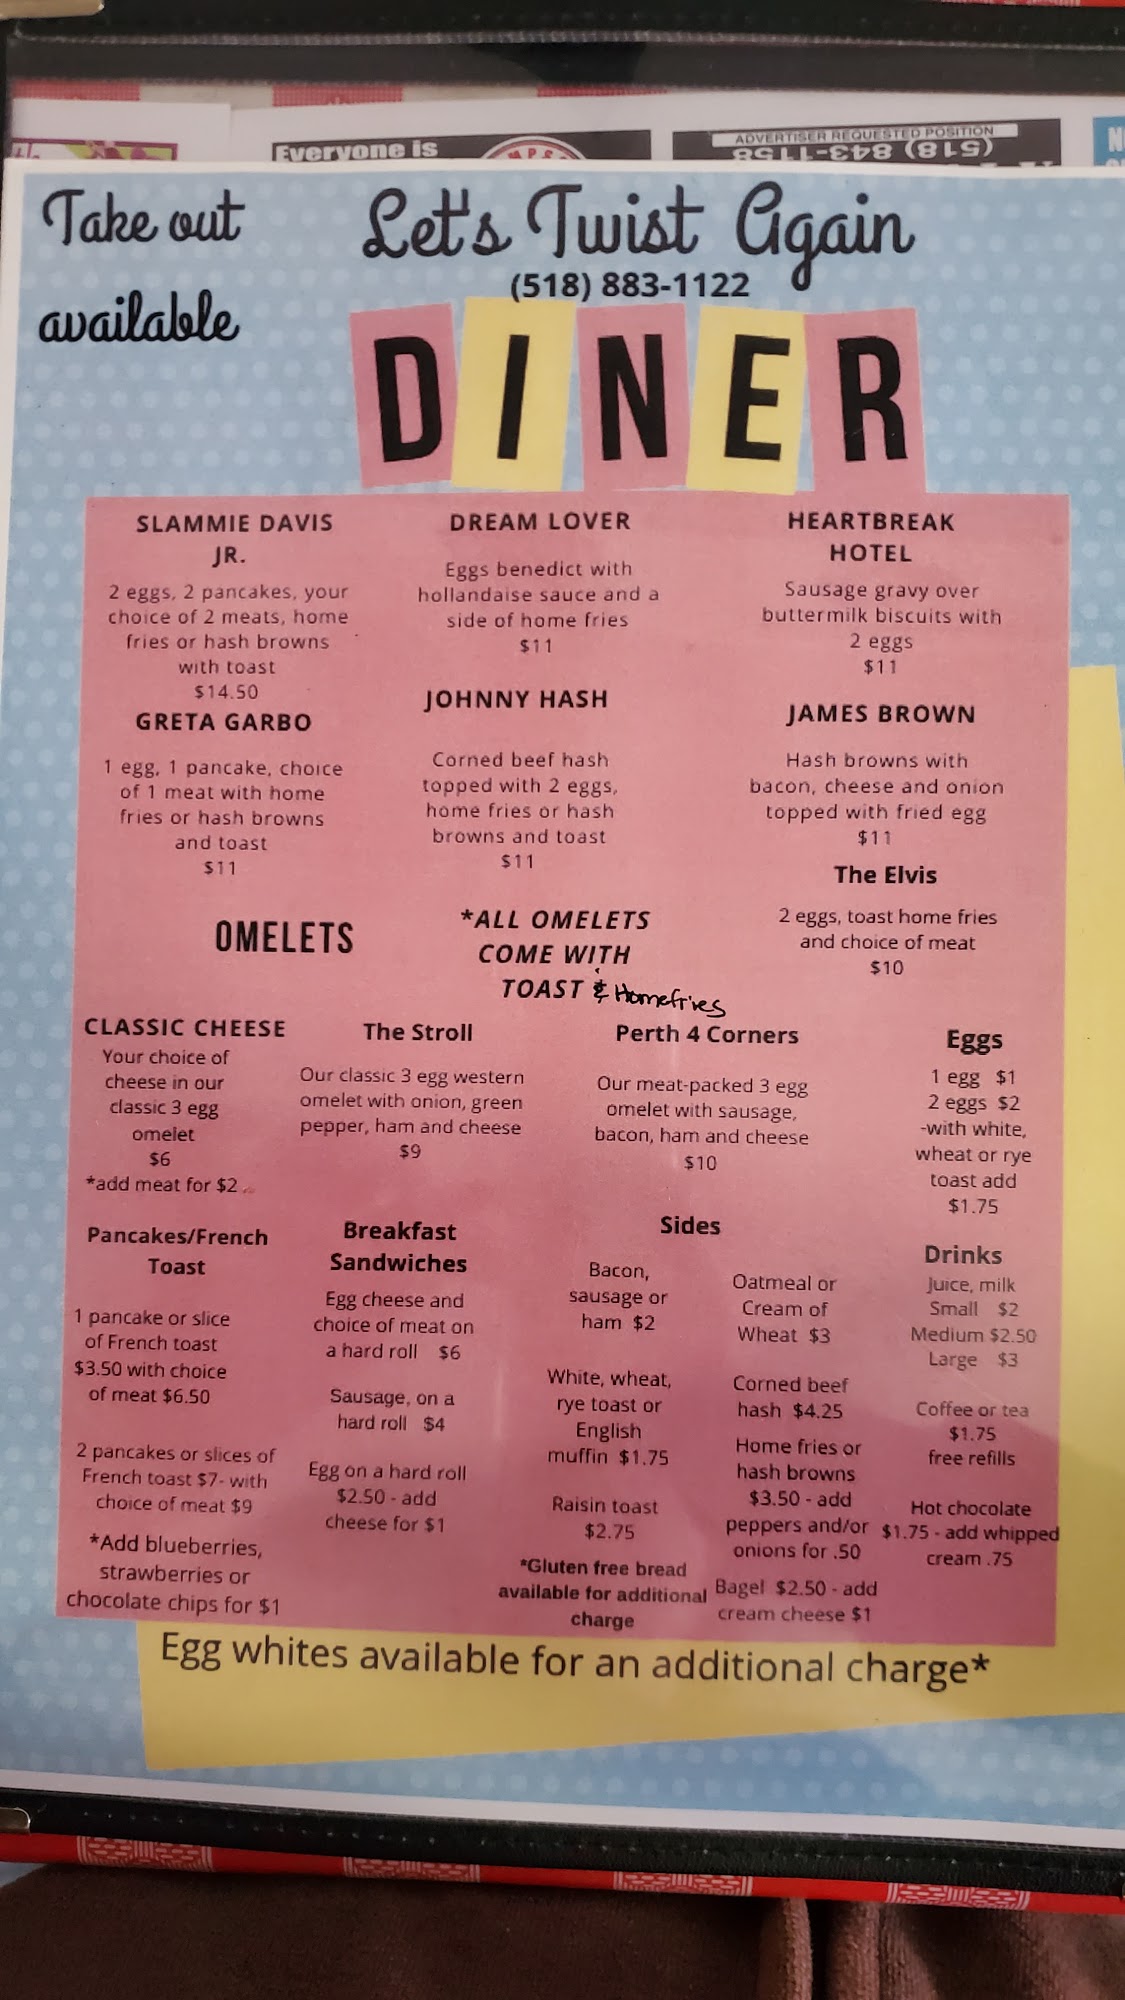 Everyone is
ADVERTISER REQUESTED POSITION
(518) 843-1158
Take out
available
Let's Twist Again
(518) 883-1122
DINER
SLAMMIE DAVIS
JR.
2 eggs, 2 pancakes, your
choice of 2 meats, home
fries or hash browns
with toast
$14.50
DREAM LOVER
Eggs benedict with
hollandaise sauce and a
side of home fries
$11
HEARTBREAK
HOTEL
Sausage gravy over
buttermilk biscuits with
2 eggs
$11
GRETA GARBO
1 egg, 1 pancake, choice
of 1 meat with home
fries or hash browns
and toast
$11
JOHNNY HASH
Corned beef hash
topped with 2 eggs,
home fries or hash
browns and toast
$11
JAMES BROWN
Hash browns with
bacon, cheese and onion
topped with fried egg
$11
The Elvis
2 eggs, toast home fries
and choice of meat
$10
OMELETS
*ALL OMELETS
COME WITH
TOAST & Homefries
CLASSIC CHEESE
Your choice of
cheese in our
classic 3 egg
omelet
$6
*add meat for $2
The Stroll
Our classic 3 egg western
omelet with onion, green
pepper, ham and cheese
$9
Perth 4 Corners
Our meat-packed 3 egg
omelet with sausage,
bacon, ham and cheese
$10
Eggs
1 egg $1
2 eggs $2
-with white,
wheat or rye
toast add
$1.75
Pancakes/French
Toast
1 pancake or slice
of French toast
$3.50 with choice
of meat $6.50
2 pancakes or slices of
French toast $7- with
choice of meat $9
*Add blueberries,
strawberries or
chocolate chips for $1
Breakfast
Sandwiches
Egg cheese and
choice of meat on
a hard roll $6
Sausage, on a
hard roll $4
Egg on a hard roll
$2.50 - add
cheese for $1
Sides
Bacon,
sausage or
ham $2
White, wheat,
rye toast or
English
muffin $1.75
Raisin toast
$2.75
*Gluten free bread
available for additional
charge
Oatmeal or
Cream of
Wheat $3
Corned beef
hash $4.25
Home fries or
hash browns
$3.50 - add
peppers and/or
onions for .50
Bagel $2.50 - add
cream cheese $1
Drinks
Juice, milk
Small $2
Medium $2.50
Large $3
Coffee or tea
$1.75
free refills
Hot chocolate
$1.75 - add whipped
cream .75
Egg whites available for an additional charge*